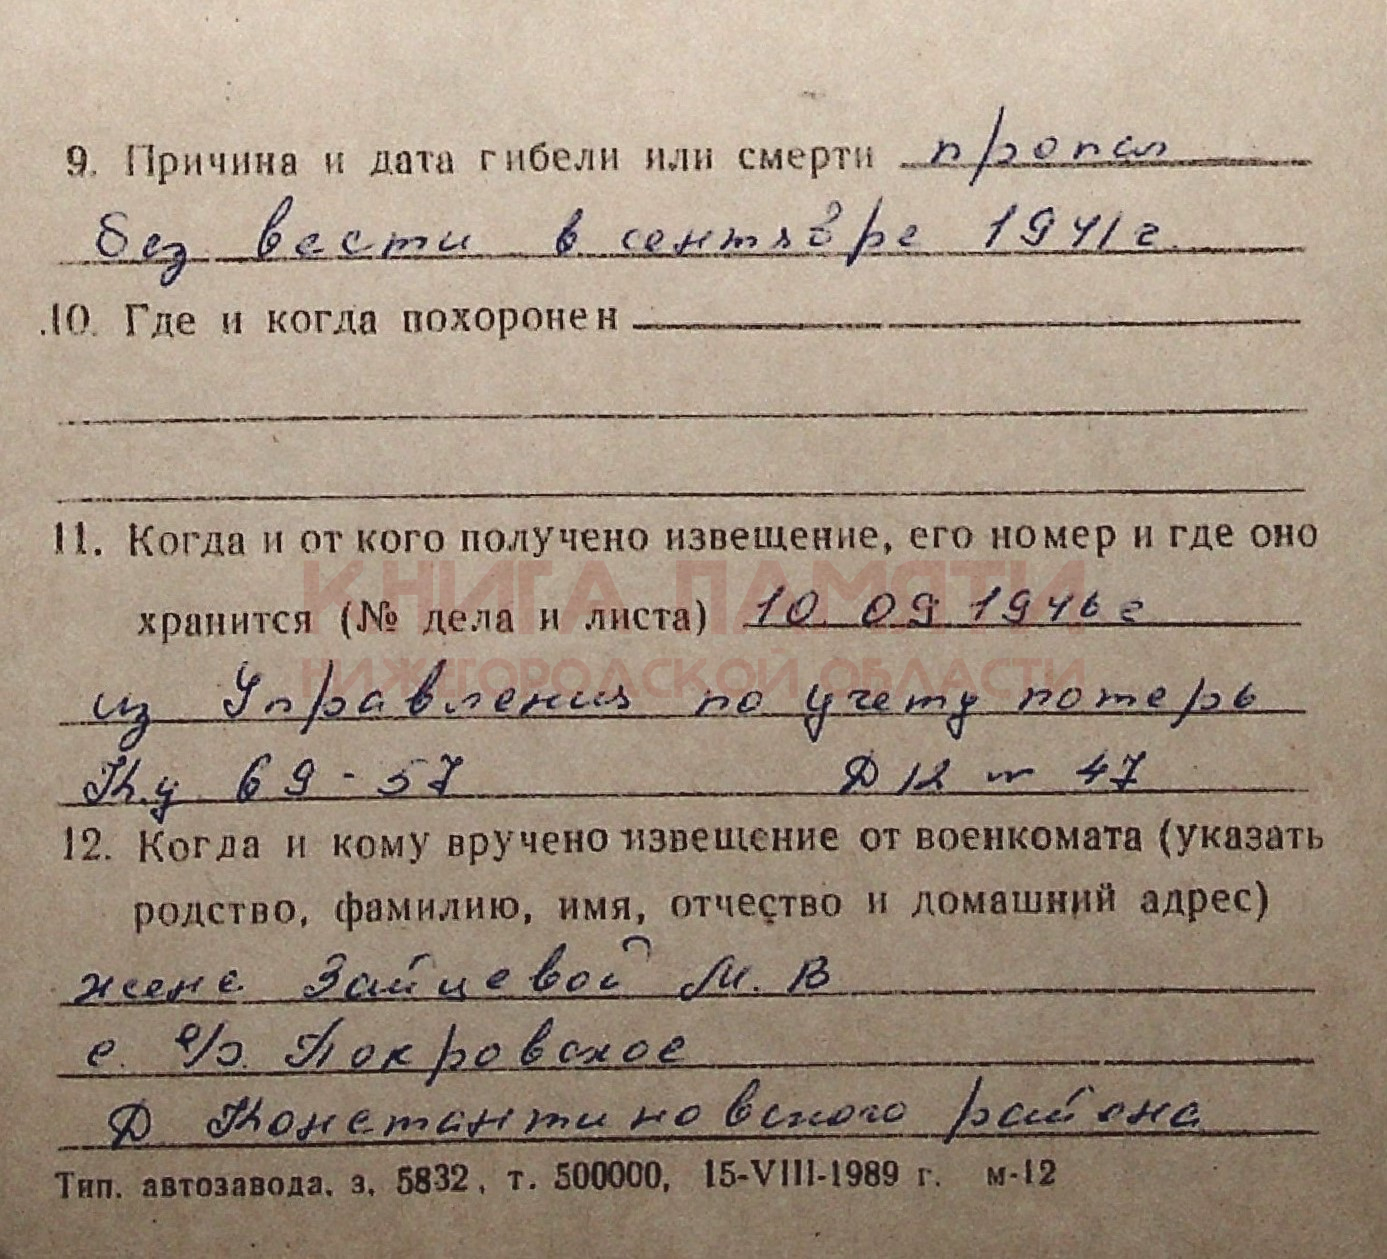 9. Причина и дата гибели или смерти пропал
без вести в сентябре 1941 г.
10. Где и когда похоронен
11. Когда и от кого получено извещение, его номер и где оно
КНИГА ПАМЯТИ
хранится (№ дела и листа) 10.09.1946 г
НИЖЕГОРОДСКОЙ ОБЛАСТИ
из Управления по учету потерь
69-57 47
12. Когда и кому вручено извещение от военкомата (указать
родство, фамилию, имя, отчество и домашний адрес)
жене Зайцевой М. В
с. Покровское
Д Константиновского района
Тип. автозавода, з. 5832, т. 500000, 15-VIII-1989 г. м-12